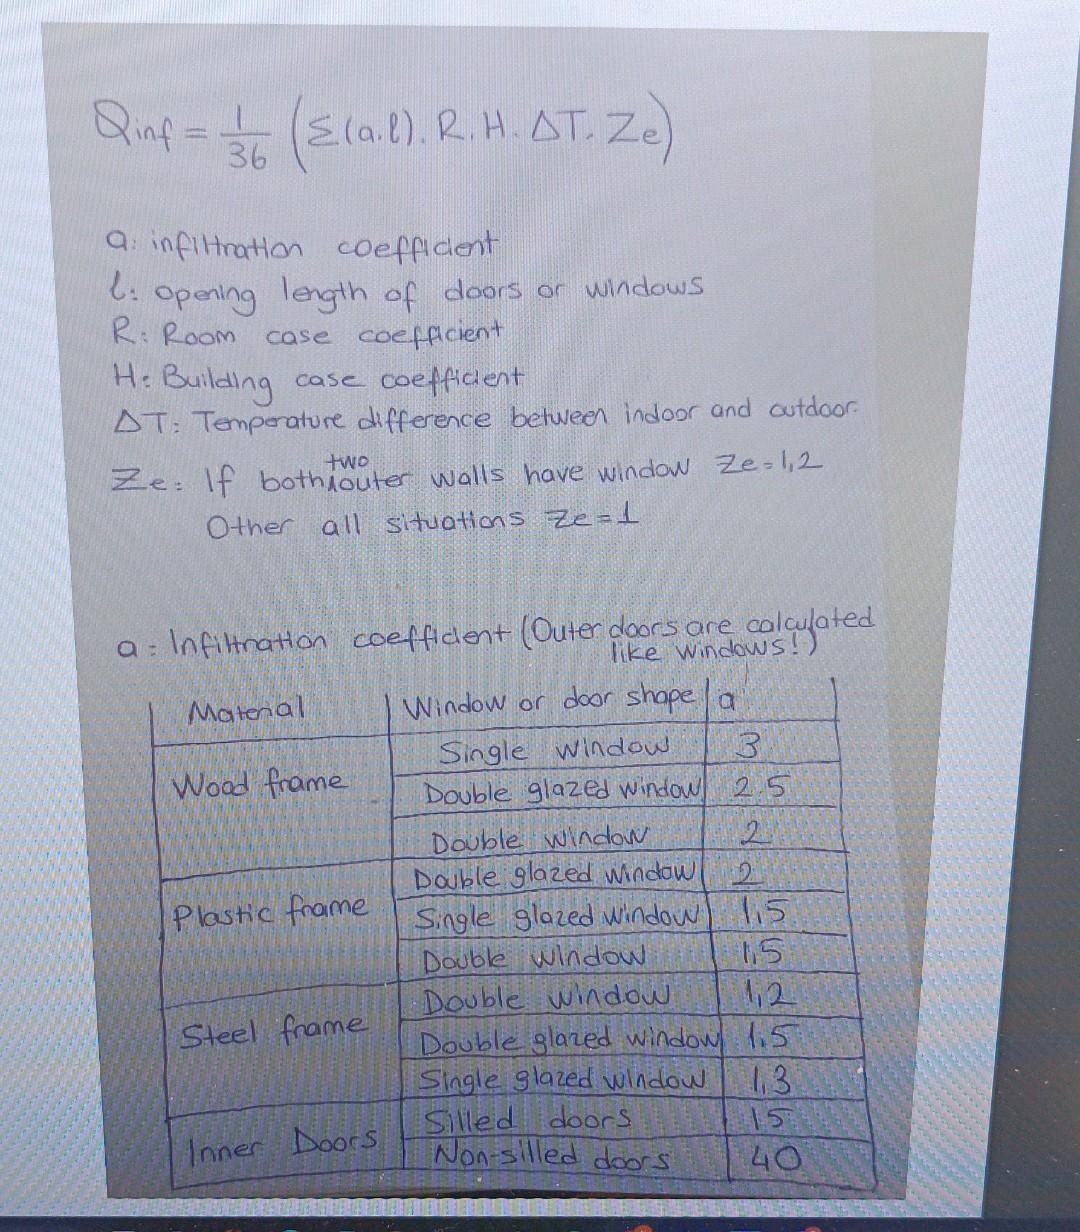 Qinf = 1/36 (Σ(a.l). R. H. ΔT. Ze)
a: infiltration coefficient
l: opening length of doors or windows
R: Room case coefficient
H: Building case coefficient
ΔT: Temperature difference between indoor and outdoor.
Ze: If both two outer walls have window Ze=1,2
Other all situations Ze=1
a: Infiltration coefficient (Outer doors are calculated
like windows!)
Material Window or door shape a
Wood frame Single window 3
Double glazed window 2.5
Double window 2
Plastic frame Double glazed window 2
Single glazed window 1,5
Double window 1,5
Steel frame Double window 1,2
Double glazed window 1.5
Single glazed window 1,3
Inner Doors Silled doors 15
Non-silled doors 40